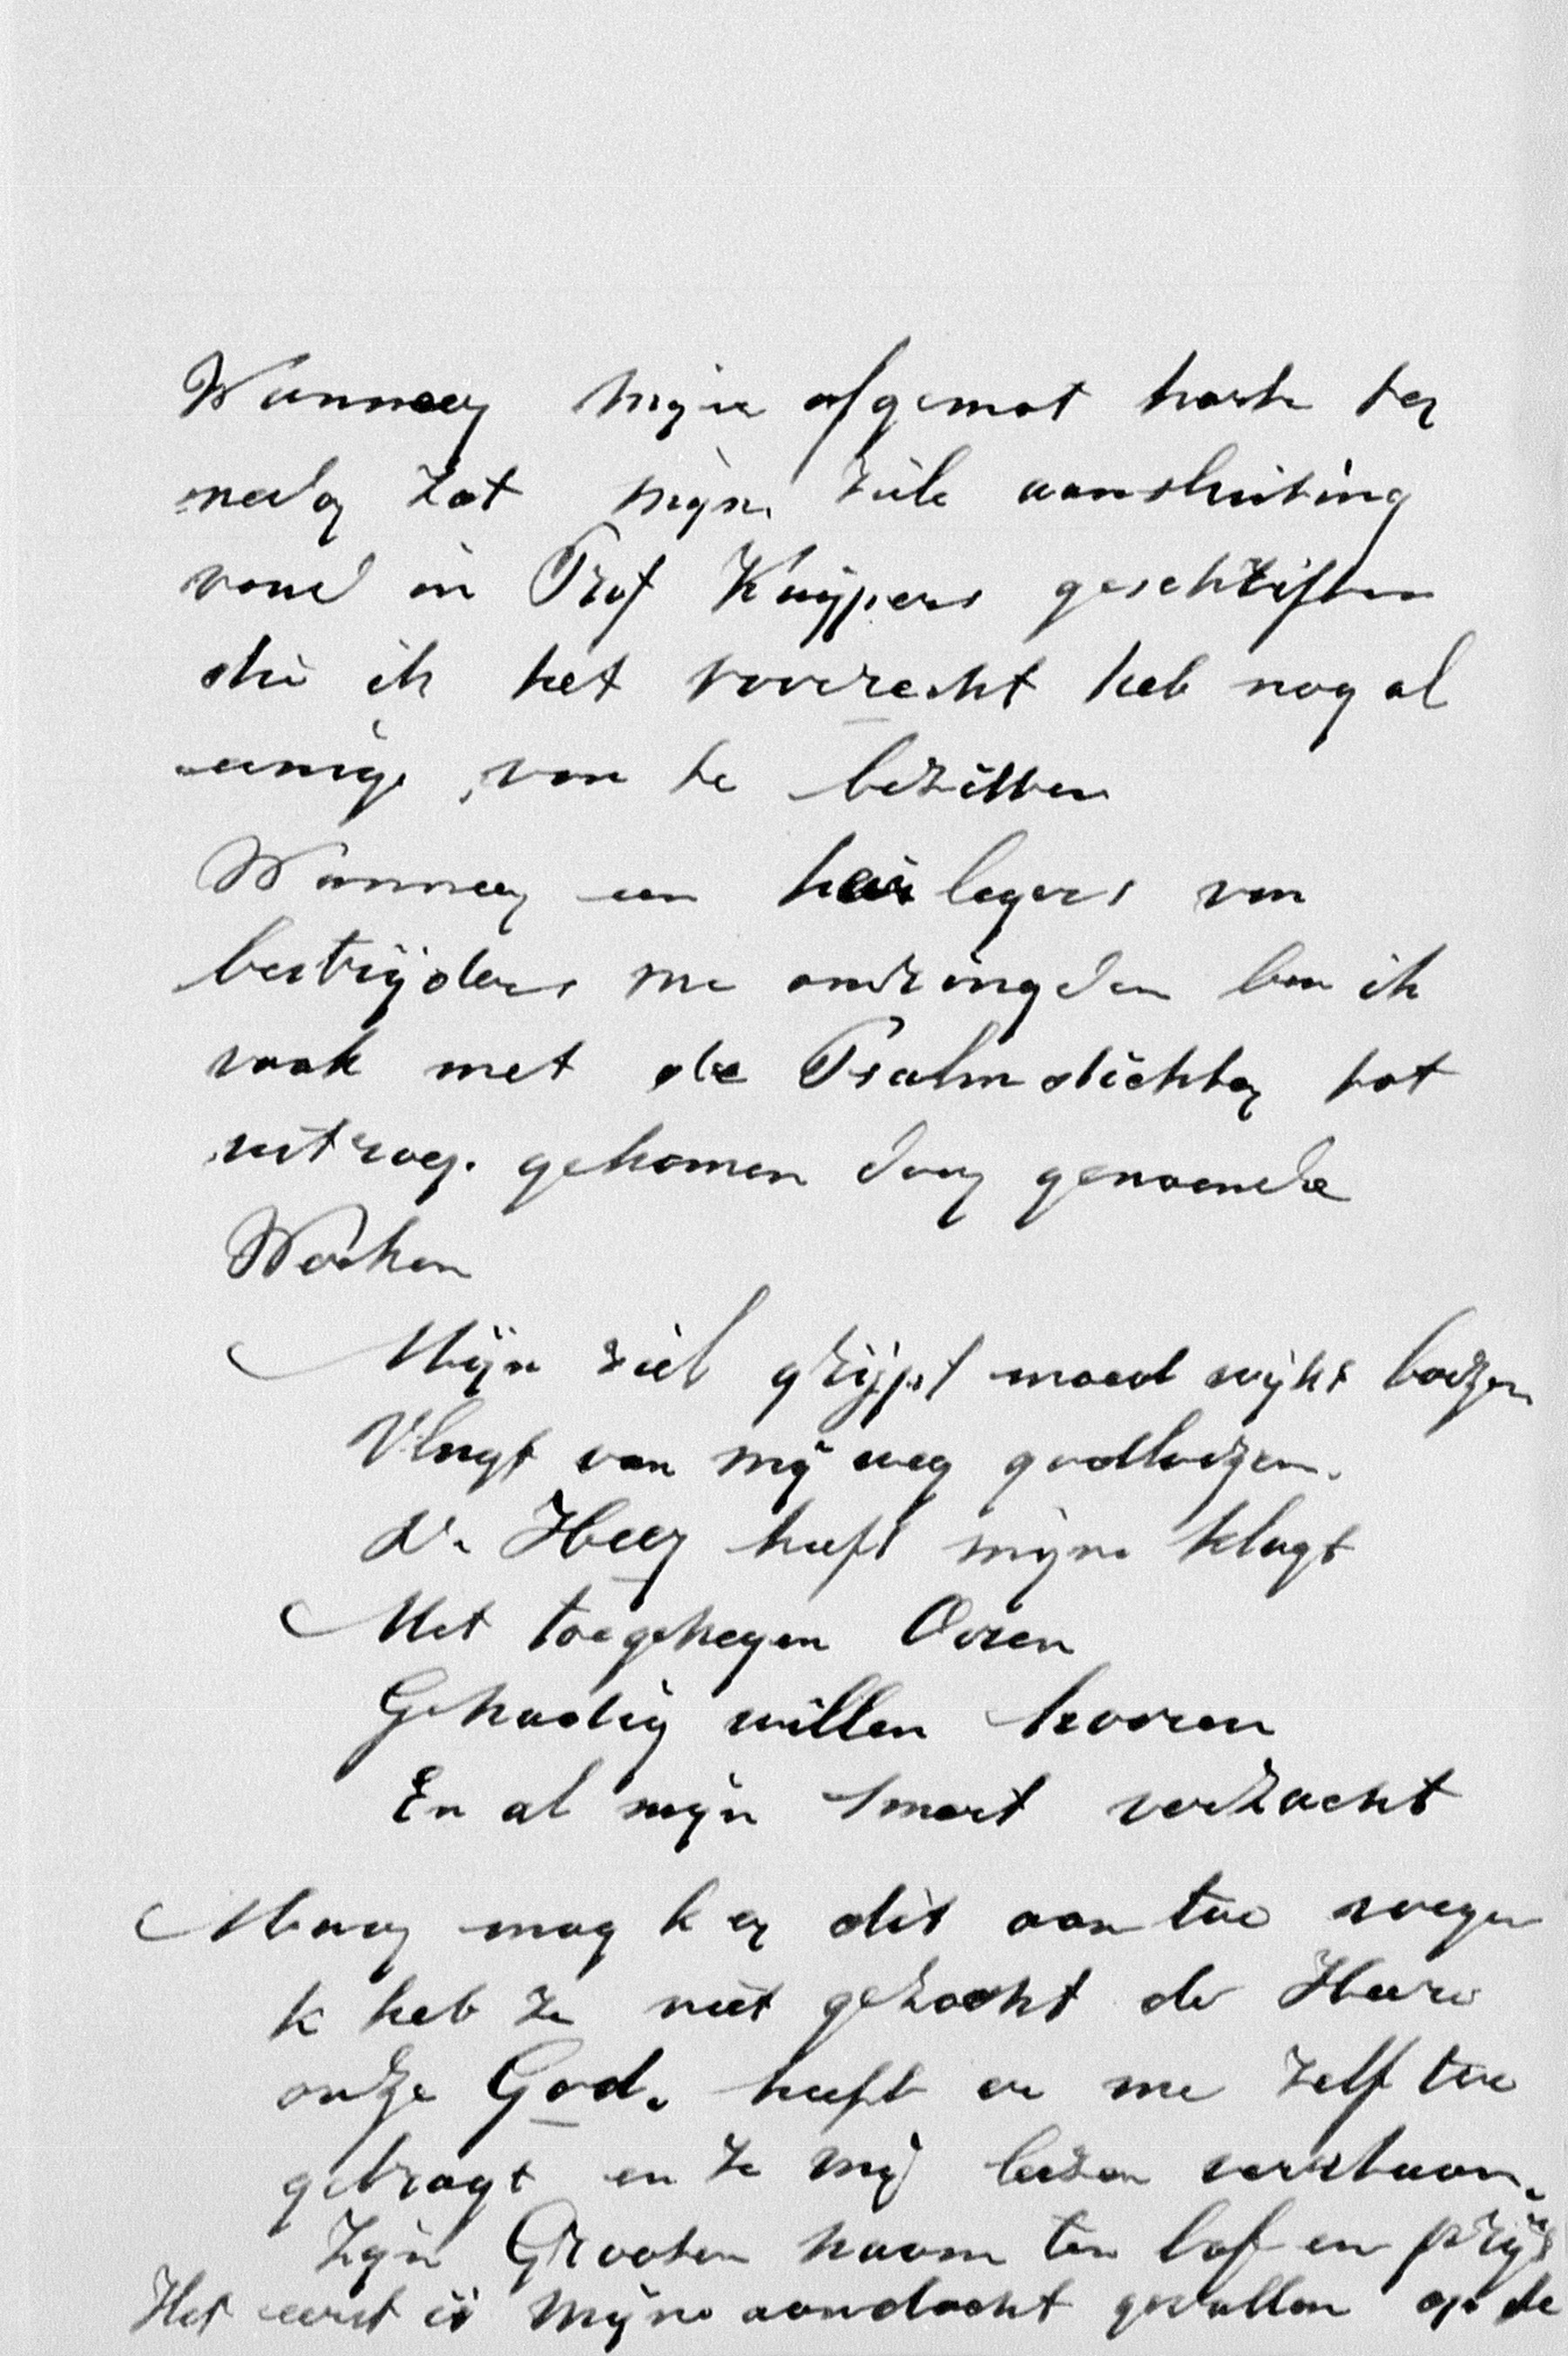 Wanneer mijn afgemat harte ter
neder zat mijn ziele aansluiting
vond in Prof Kuijpers geschriften
die ik het voorrecht heb nog al
eenige van te bezitten
Wanneer een heir legers van
bestrijders me omringden ben ik
vaak met de Psalmdichter tot
uitroep gekomen door genoemde
Werken
Mijn ziel grijpt moed wijkt boozen
Vlugt van mij weg godloozen.
de Heer heeft mijne klagt
Met toegenegen Ooren
Genadig willen hooren
En al mijn smart verzacht
Maar mag k er dit aan toe voegen
k heb ze niet gezocht de Heere
onze God. heeft er me zelf toe
gebragt en ze mij leeren verstaan.
Zijn Grooten naam ten lof en prijs
Het eerst is mijne aandacht gevallen op de